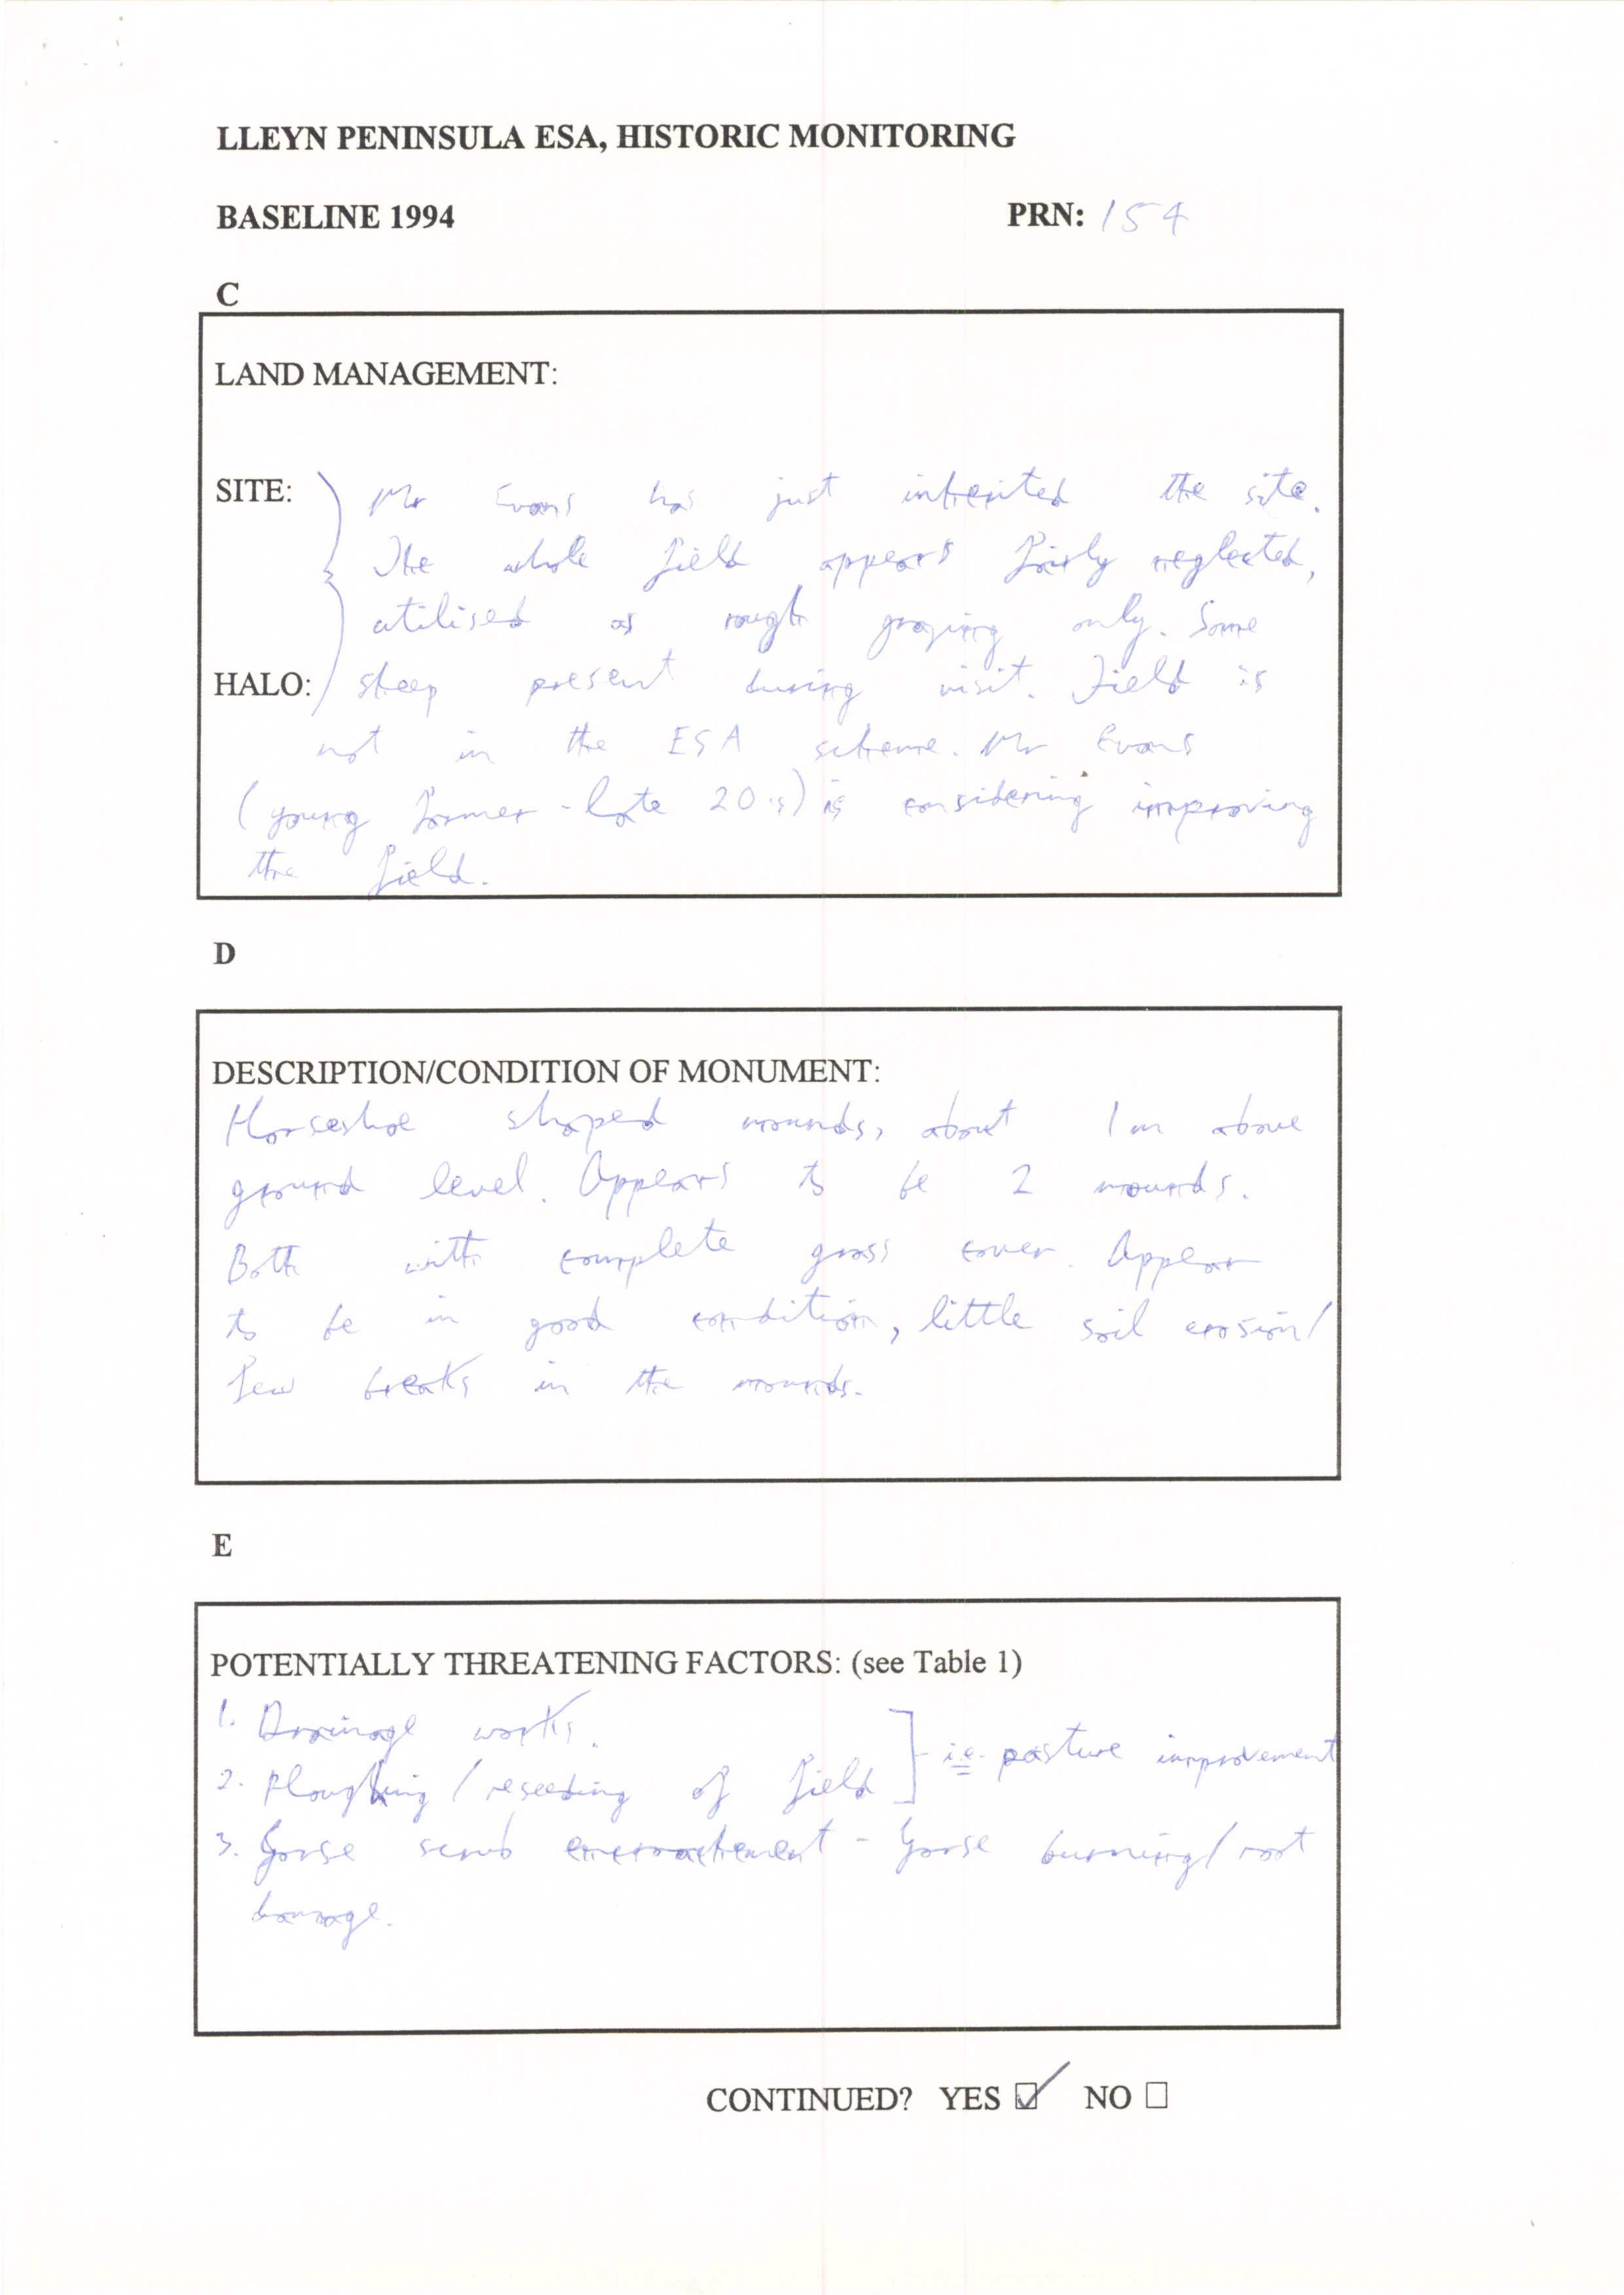 LLEYN PENINSULA ESA, HISTORIC MONITORING
BASELINE 1994 PRN: 154
C
LAND MANAGEMENT:
SITE: Mr Evans has just inherited the site.
The whole field appears fairly neglected,
utilised as rough grazing only. Some
HALO: sheep present during visit. Field is
not in the ESA scheme. Mr Evans
(young farmer - late 20's) is considering improving
the field.
D
DESCRIPTION/CONDITION OF MONUMENT:
Horseshoe shaped mounds, about 1m above
ground level. Appears to be 2 mounds.
Both with complete grass cover. Appear
to be in good condition, little soil erosion/
few breaks in the mounds.
E
POTENTIALLY THREATENING FACTORS: (see Table 1)
1. Drainage works.
2. Ploughing / reseeding of field ] - i.e. pasture improvement
3. Gorse scrub encroachment - Gorse burning/root
damage.
CONTINUED? YES ☑ NO ☐